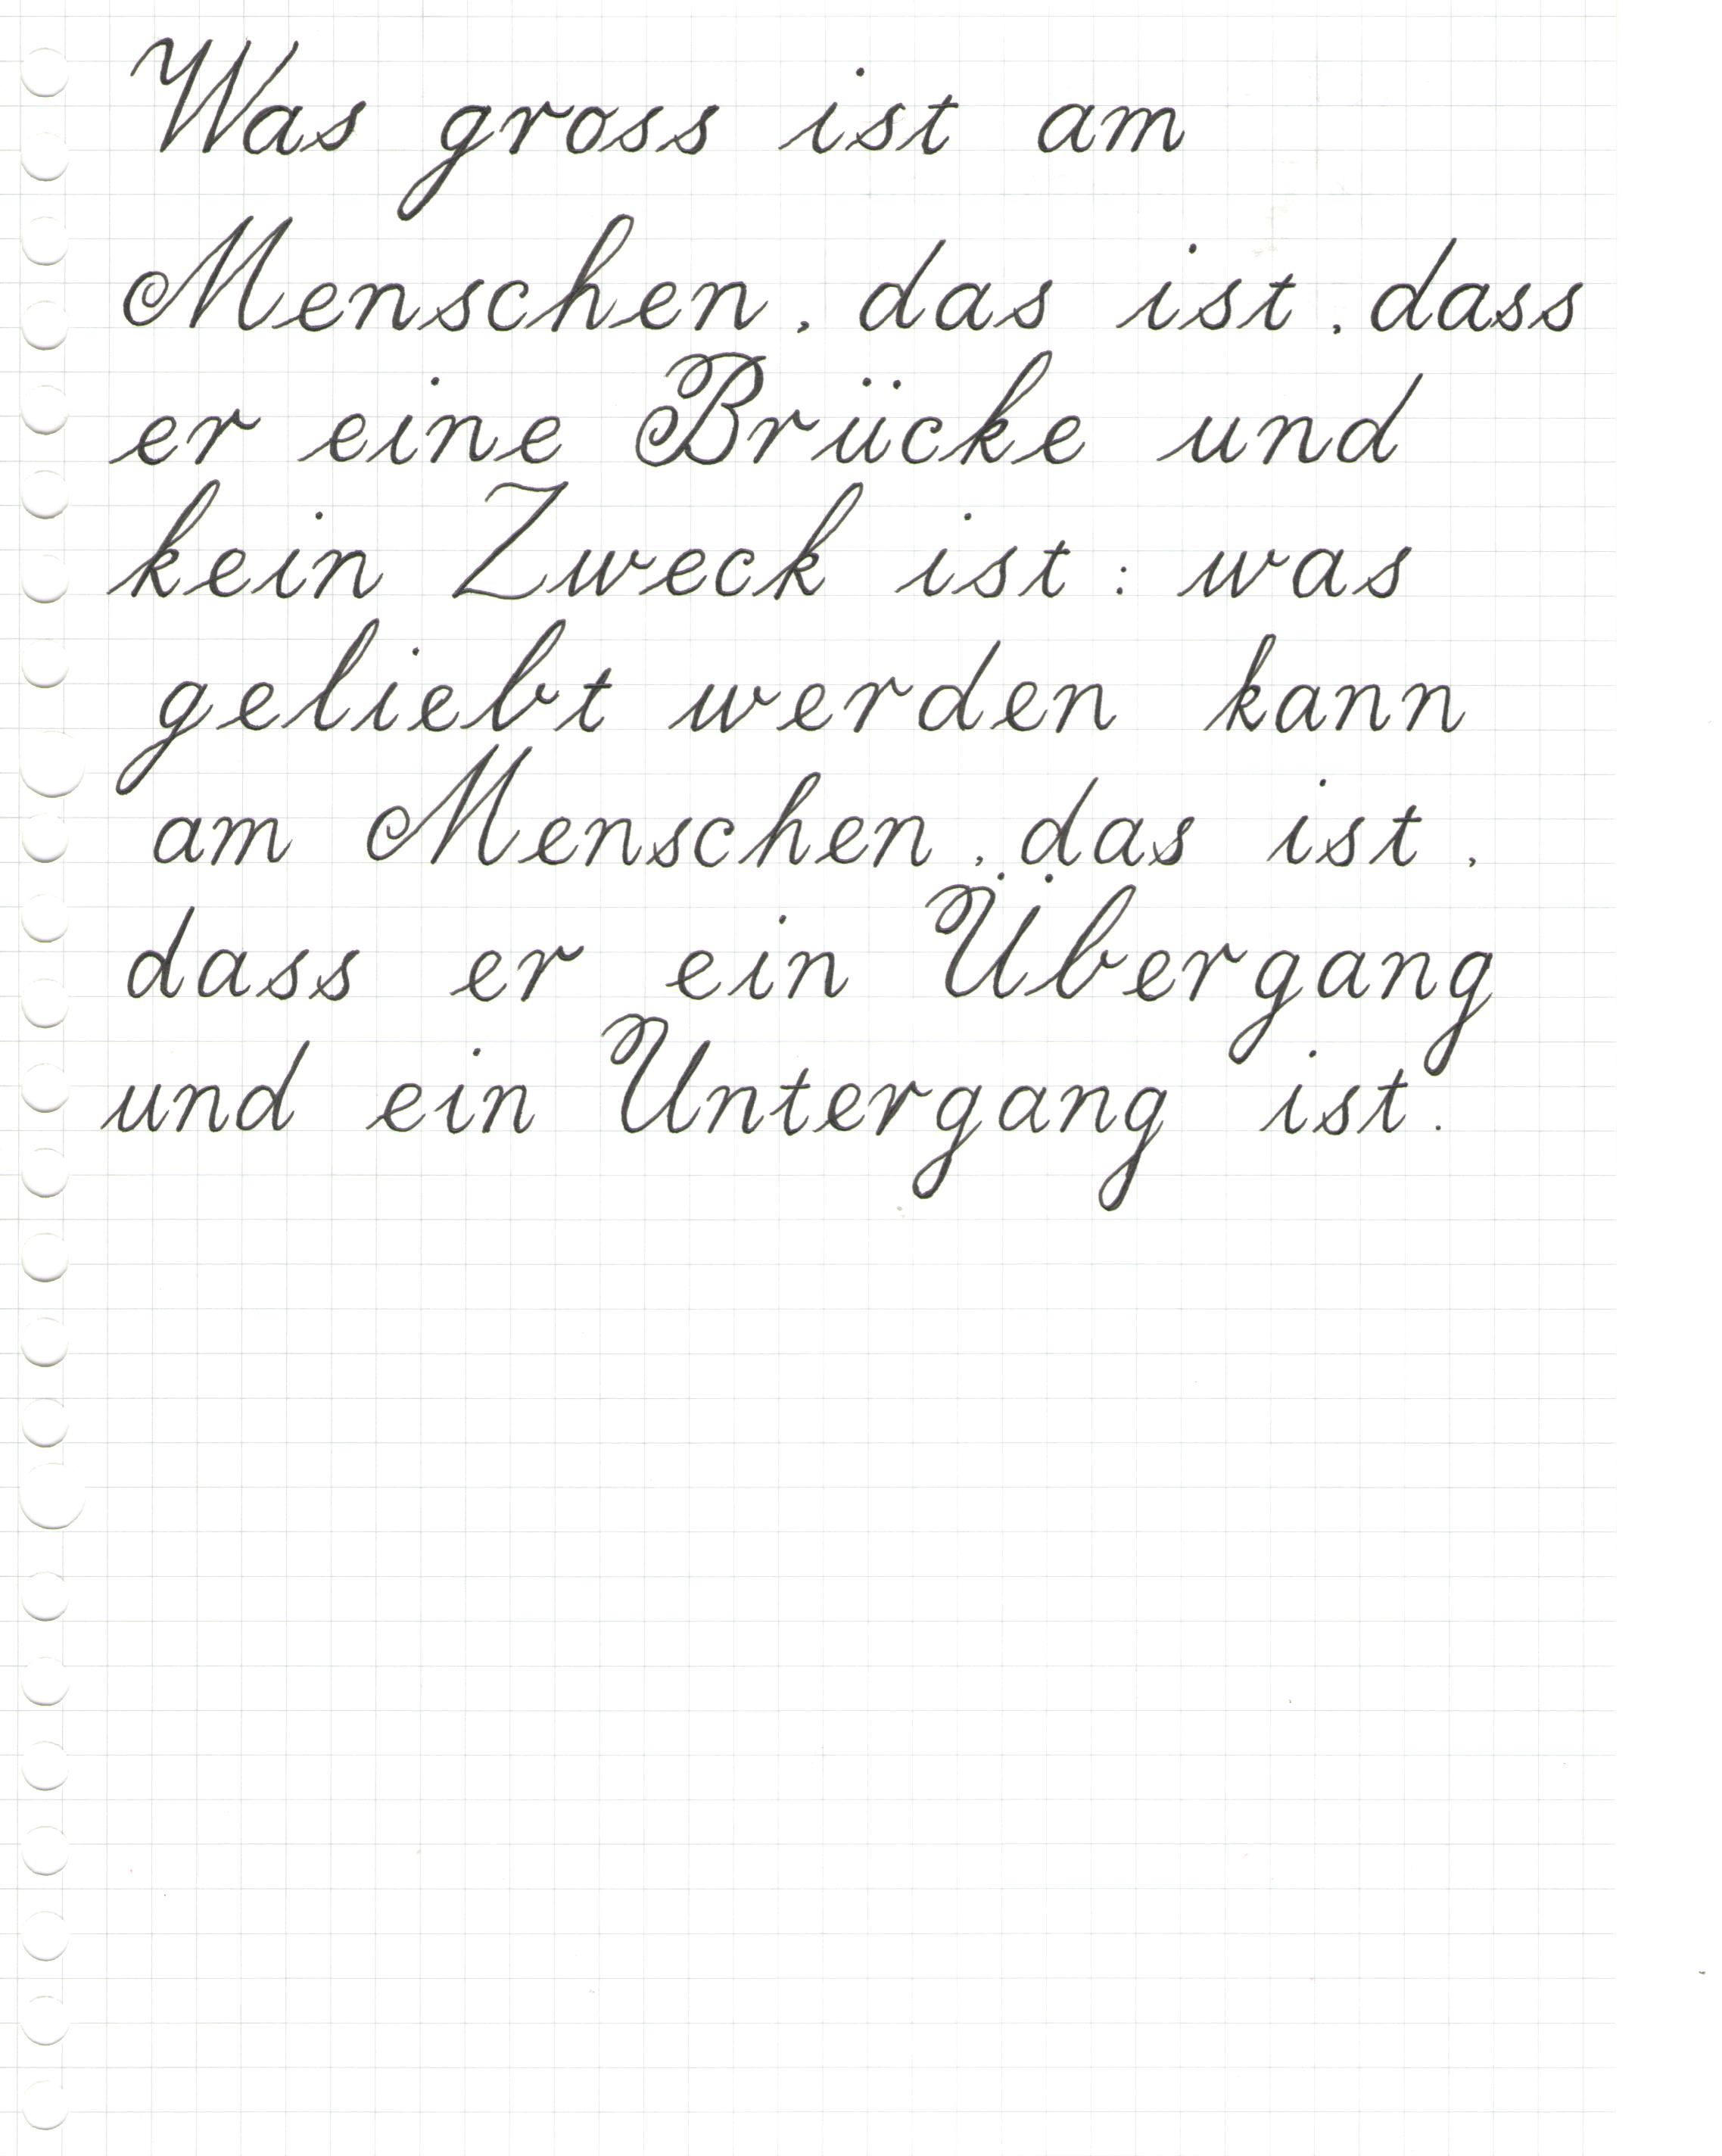 Was gross ist am
Menschen, das ist, dass
er eine Brücke und
kein Zweck ist: was
geliebt werden kann
am Menschen, das ist,
dass er ein Übergang
und ein Untergang ist.